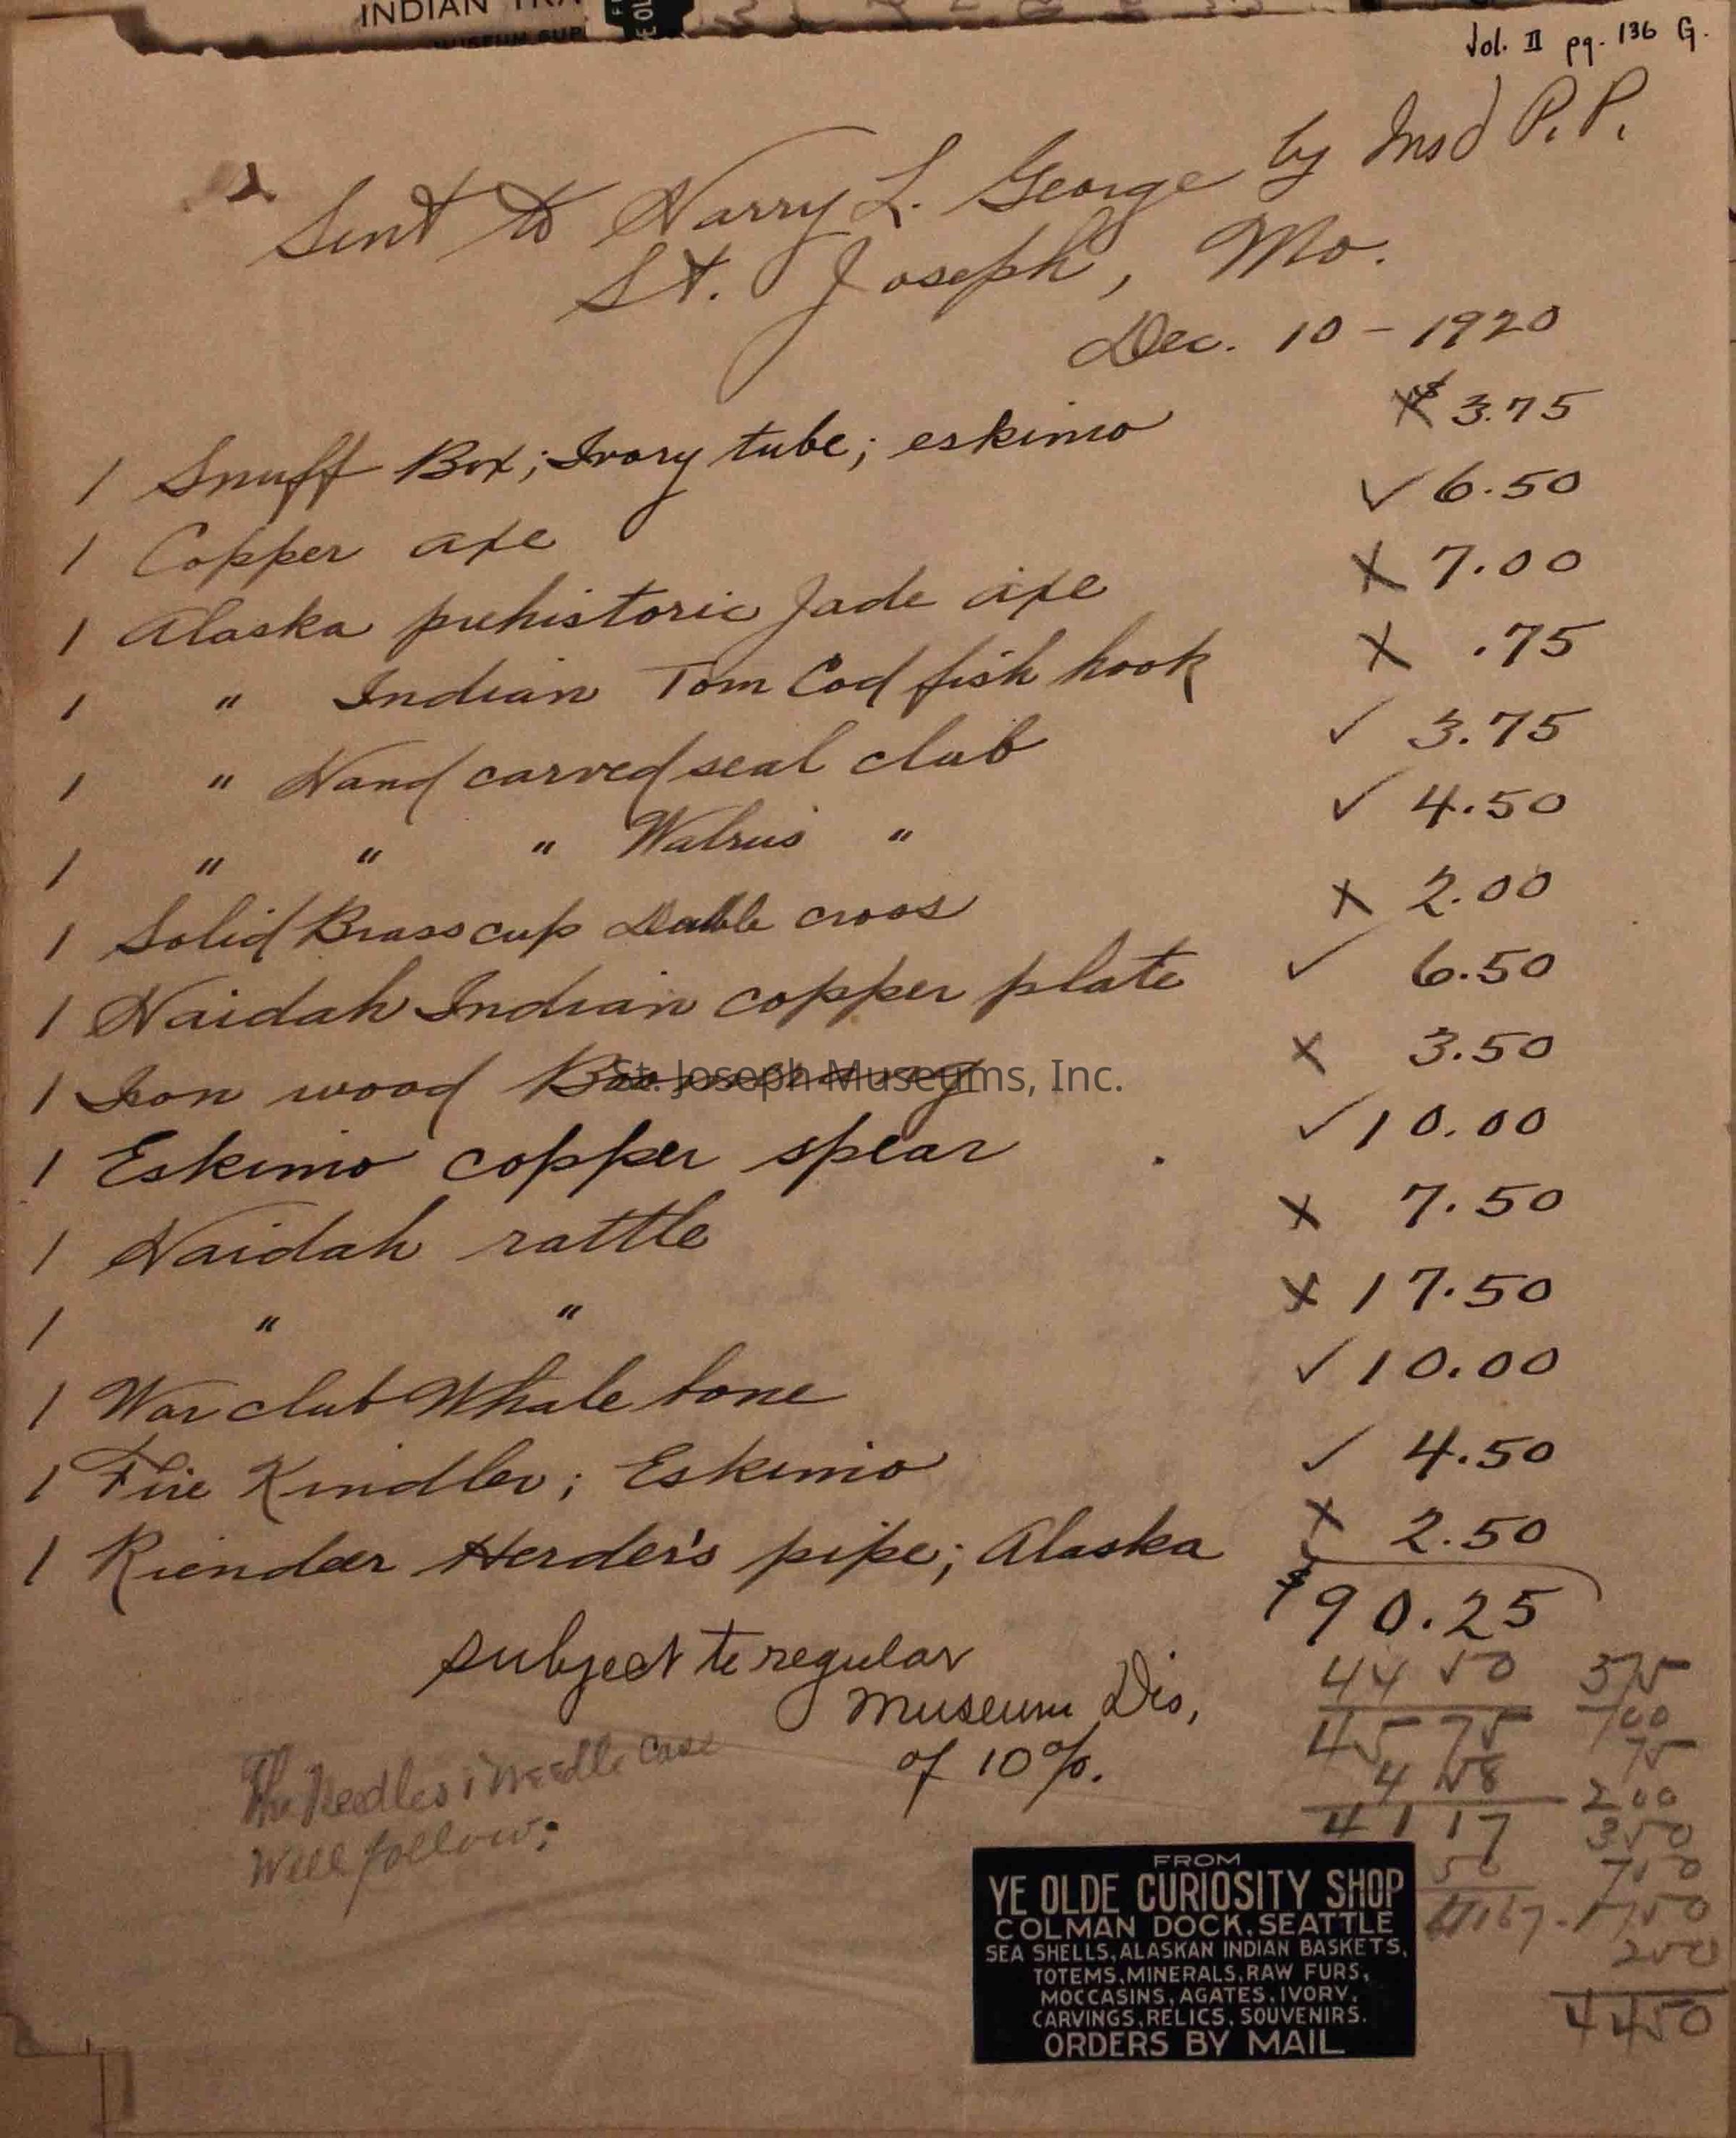 INDIAN TRA
MUSEUM SUP
Vol. II pg. 136 G.
Sent to Harry L. George by Insd P.P.
St. Joseph, Mo.
Dec. 10 - 1920
1 Snuff Box; Ivory tube; eskimo X $ 3.75
1 Copper axe ✓ 6.50
1 Alaska prehistoric Jade axe X 7.00
1 " Indian Tom Cod fish hook X .75
1 " Hand carved seal club ✓ 3.75
1 " " " Walrus " ✓ 4.50
1 Solid Brass cup Double cross X 2.00
1 Haidah Indian copper plate ✓ 6.50
1 Iron wood Boomerang X 3.50
St. Joseph Museums, Inc.
1 Eskimo copper spear ✓ 10.00
1 Haidah rattle X 7.50
1 " " X 17.50
1 War club Whale bone ✓ 10.00
1 Fire Kindler; Eskimo ✓ 4.50
1 Riendeer Herder's pipe; Alaska X 2.50
$90.25
subject to regular
Museum Dis,
of 10%.
The Needles & Needle case
Will follow;
44 50
45 75
4 58
41 17
50
4167
375
700
75
200
350
750
1750
250
4450
FROM
YE OLDE CURIOSITY SHOP
COLMAN DOCK, SEATTLE
SEA SHELLS, ALASKAN INDIAN BASKETS,
TOTEMS, MINERALS, RAW FURS,
MOCCASINS, AGATES, IVORY,
CARVINGS, RELICS, SOUVENIRS.
ORDERS BY MAIL